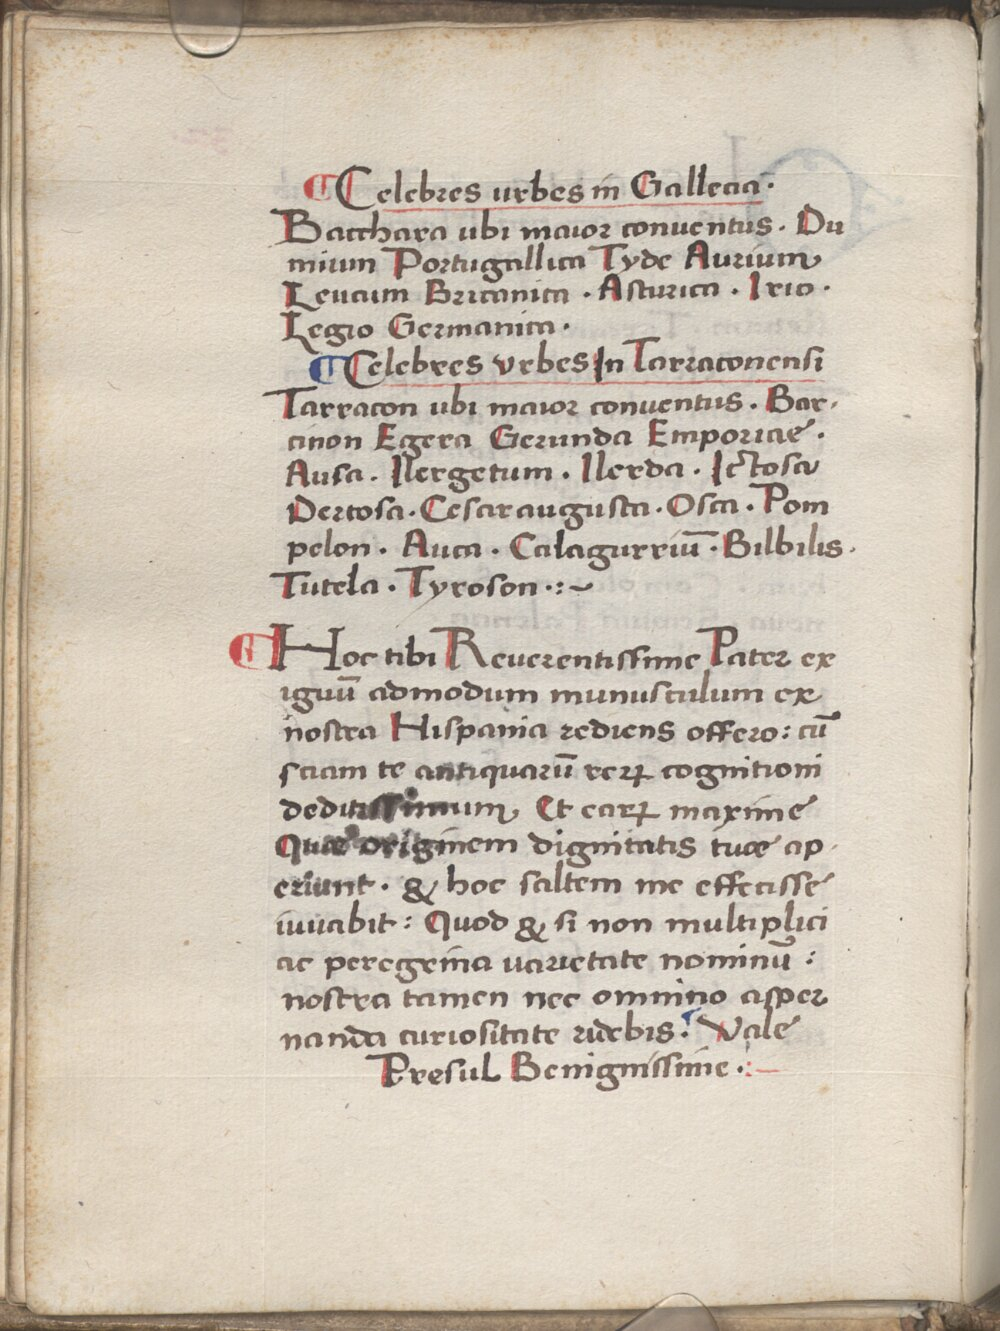 Celebres urbes in Gallecia.
Bacchara ubi maior conventus. Du
mium Portugallica Tyde Aurium
Leucum Britanica. Asturica. Iria.
Legio Germanica.
Celebres vrbes In Tarraconensi
Tarracon ubi maior conventus. Bar-
cinon Egera Gerunda Emporiae.
Ausa. Ilergetum. Ilerda. Ictosa
Dertosa. Cesaraugusta. Osca. Pom
pelon. Auca. Calagurriū. Bilbilis.
Tutela. Tyroson.:~
Hoc tibi Reuerentissime Pater ex
iguū admodum munusculum ex
nostra Hispania rediens offero: cū
sciam te antiquarū reꝝ cognitioni
deditissimum, Et earꝝ maxime
Quae originem dignitatis tuae ap-
eriunt. & hoc saltem me effecisse
iuuabit: Quod & si non multiplici
ac peregrina uarietate nominū:
nostra tamen nec omnino asper
nanda curiositate ridebis. Vale
Presul Benignissime.:-